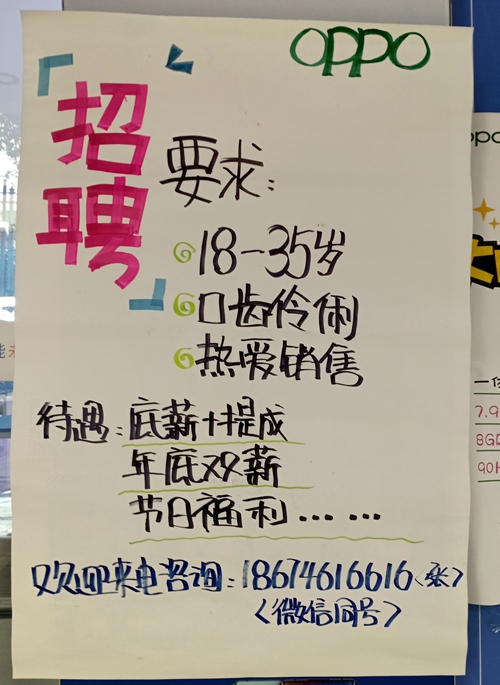 OPPO
招聘
要求:
18-35岁
口齿伶俐
热爱销售
待遇:底薪+提成
年底双薪
节日福利……
欢迎来电咨询:18674616616(张)
(微信同号)
7.9
8G
90H